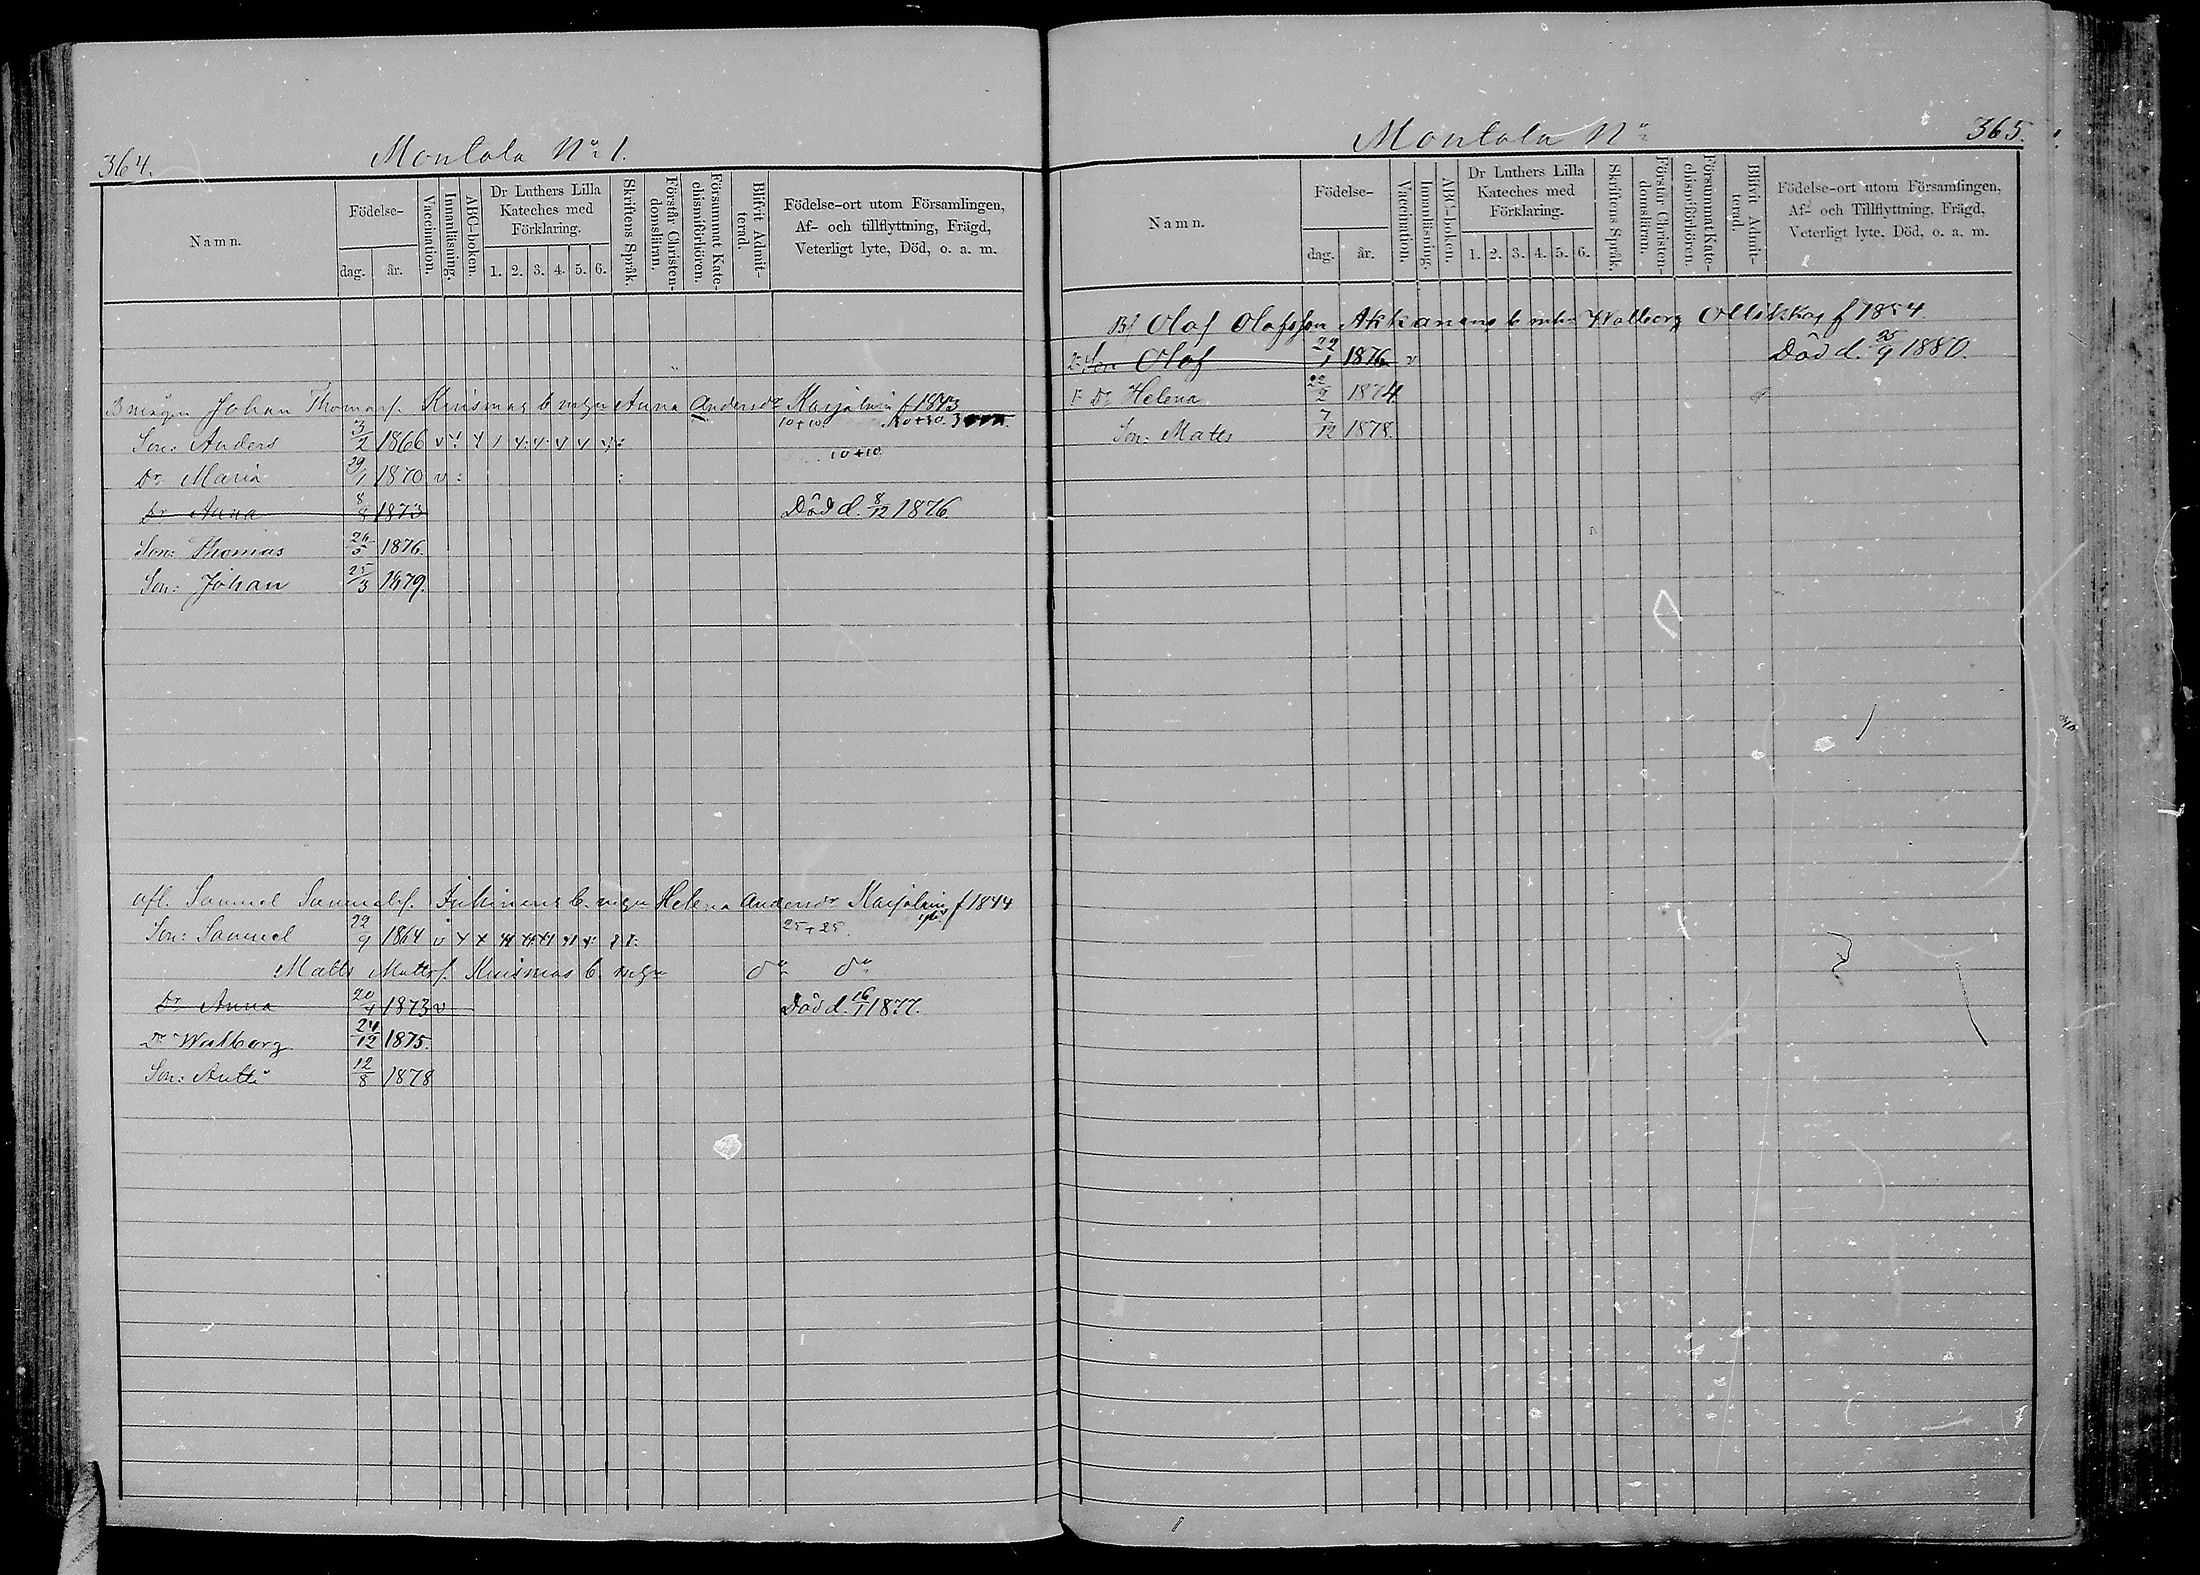 364.
Montola No 1.
Namn.
Födelse-
dag.
år.
Vaccination.
Innanläsning.
ABC-boken.
Dr Luthers Lilla Kateches med Förklaring.
1. 2. 3. 4. 5. 6.
Skriftens Språk.
Förstår Christen-domsläran.
Försummat Kate-chismiförhören.
Blifvit Admit-terad.
Födelse-ort utom Församlingen,
Af- och tillflyttning, Frägd,
Veterligt lyte, Död, o. a. m.
Johan Thomasf. Kuismas b. mågen Anna Andersdr Karjalain f 1843
10+10.
Son: Anders 3/2 1866 v
10+10
Dr Maria 29/1 1870 v
Dr Anna 8/8 1873 Död d. 8/12 1876.
Son: Thomas 1876.
Son: Johan 25/3 1879.
afl. Samuel Samuelsf. b. mågen Helena Andersdr Karjalain f 1844
Son: Samuel 22/9 1864 v 25+25.
Matts Mattsf. Kuismas b. mågen do do
Dr Anna 1873 v Död d. 16/1 1877.
Dr Walborg 24/12 1875.
Son: Antti 12/8 1878
Montola No
365.
Namn.
Födelse-
dag.
år.
Vaccination.
Innanläsning.
ABC-boken.
Dr Luthers Lilla Kateches med Förklaring.
1. 2. 3. 4. 5. 6.
Skriftens Språk.
Förstår Christen-domsläran.
Försummat Kate-chismiförhören.
Blifvit Admit-terad.
Födelse-ort utom Församlingen,
Af- och Tillflyttning, Frägd,
Veterligt lyte, Död, o. a. m.
Olof Olofsson Akkanens b. Walborg Ollikka f 1854
2. Son Olof 22/1 1876 v Död d. 25/9 1880.
1. Dr Helena 22/2 1874
Son: Matts 7/12 1878.